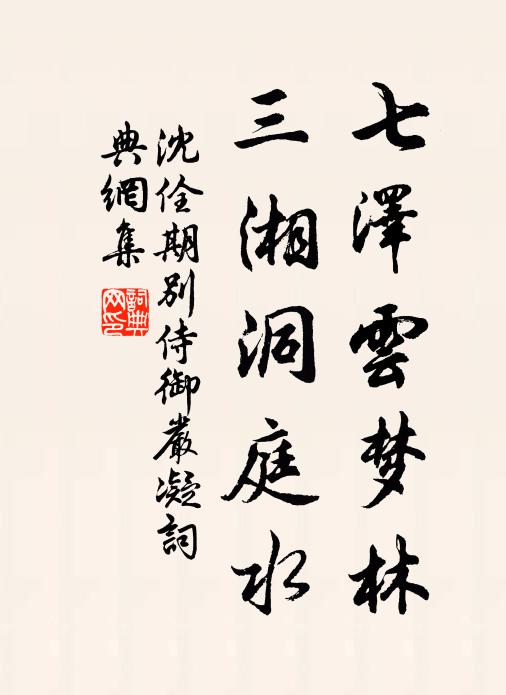 七澤雲梦林
三湘洞庭水
沈佺期别侍御嚴凝詞
典網集
詞典
网印